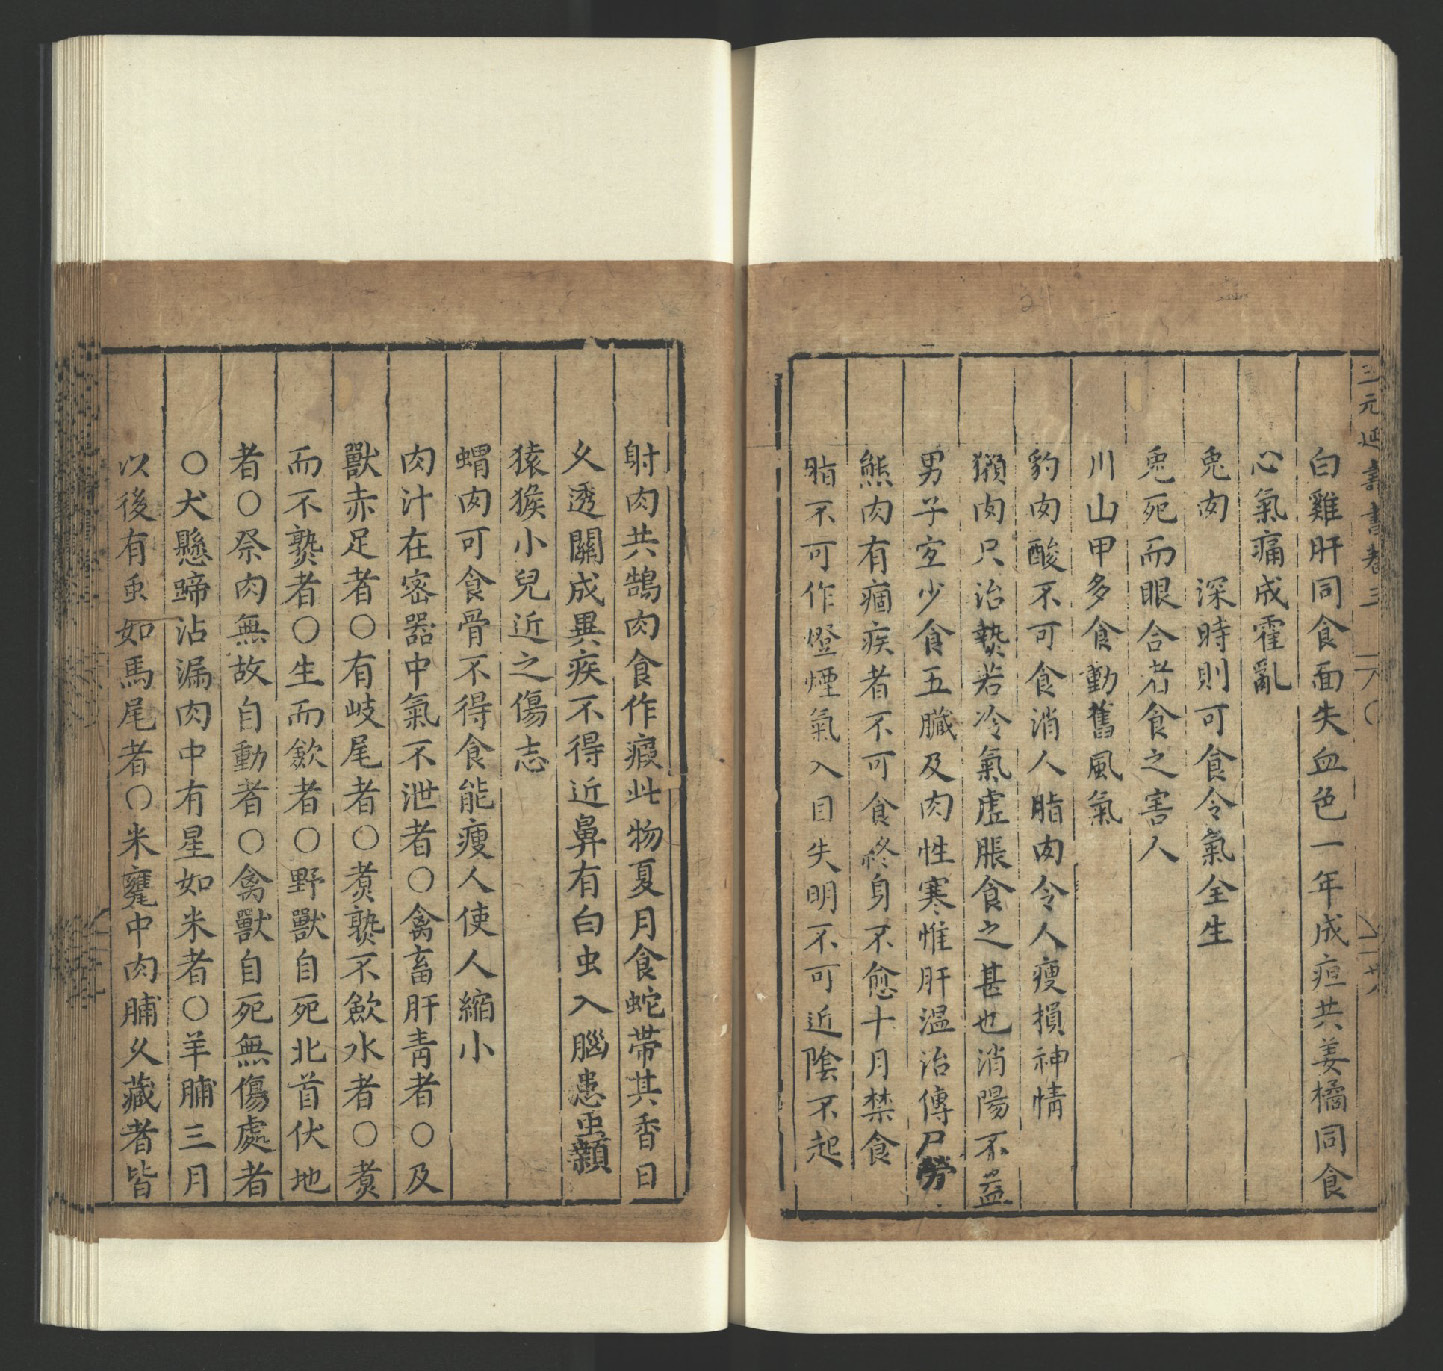 三元延壽書卷三
白雞肝同食面失血色一年成疸共姜橘同食
心氣痛成霍亂
兔肉 深時則可食令氣全生
兎死而眼合者食之害人
川山甲多食動舊風氣
豹肉酸不可食消人脂肉令人瘦損神情
獺肉只治熱若冷氣虛脹食之甚也消陽不益
男子宜少食五臟及肉性寒惟肝温治傳尸勞
熊肉有痼疾者不可食終身不愈十月禁食
脂不可作燈煙氣入目失明不可近陰不起
射肉共鵠肉食作瘕此物夏月食蛇帶其香日
久透關成異疾不得近鼻有白虫入腦患虫顙
猿猴小兒近之傷志
蝟肉可食骨不得食能瘦人使人縮小
肉汁在密器中氣不泄者○禽畜肝青者○及
獸赤足者○有岐尾者○煑熟不歛水者○煑
而不熟者○生而歛者○野獸自死北首伏地
者○祭肉無故自動者○禽獸自死無傷處者
○犬懸蹄沾漏肉中有星如米者○羊脯三月
以後有虫如馬尾者○米甕中肉脯久藏者皆